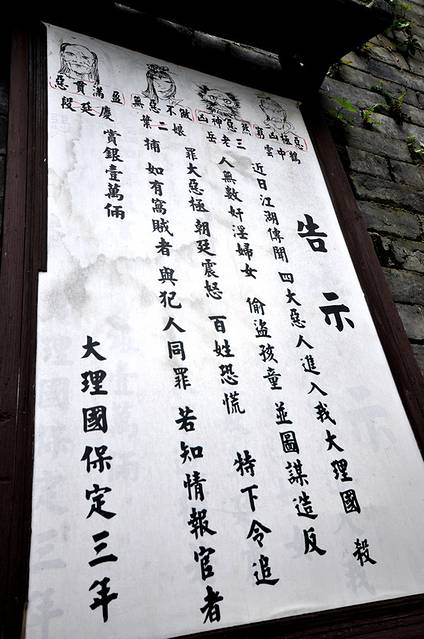 惡貫滿盈
段延慶
無惡不做
葉二娘
凶神惡煞
岳老三
窮凶極惡
雲中鶴
告示
近日江湖傳聞 四大惡人進入我大理國 殺
人無數奸淫婦女 偷盜孩童 並圖謀造反
罪大惡極朝廷震怒 百姓恐慌 特下令追
捕 如有窩賊者 與犯人同罪 若知情報官者
賞銀壹萬倆
大理國保定三年